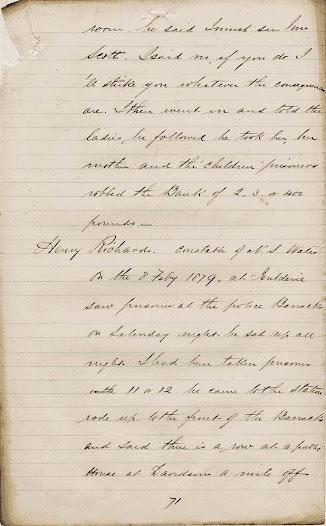 room. he said I must see Mrs
Scott. I said no, if you do I
'll strike you whatever the consequences
are. I then went in and told the
ladies, he followed he took her, her
mother and the children prisoners
robbed the Bank of 2. 3. or 400
pounds —
Henry Richards. Constable of N. S Wales
On the 8 Feby 1879. at Jerilderie
saw prisoner at the police Barracks
on Saturday night he sat up all
night. I had been taken prisoner
11 or 12. he came to the Station
rode up to the front of the Barracks
and said there is a row at a public
House at Davidsons a mile off
71